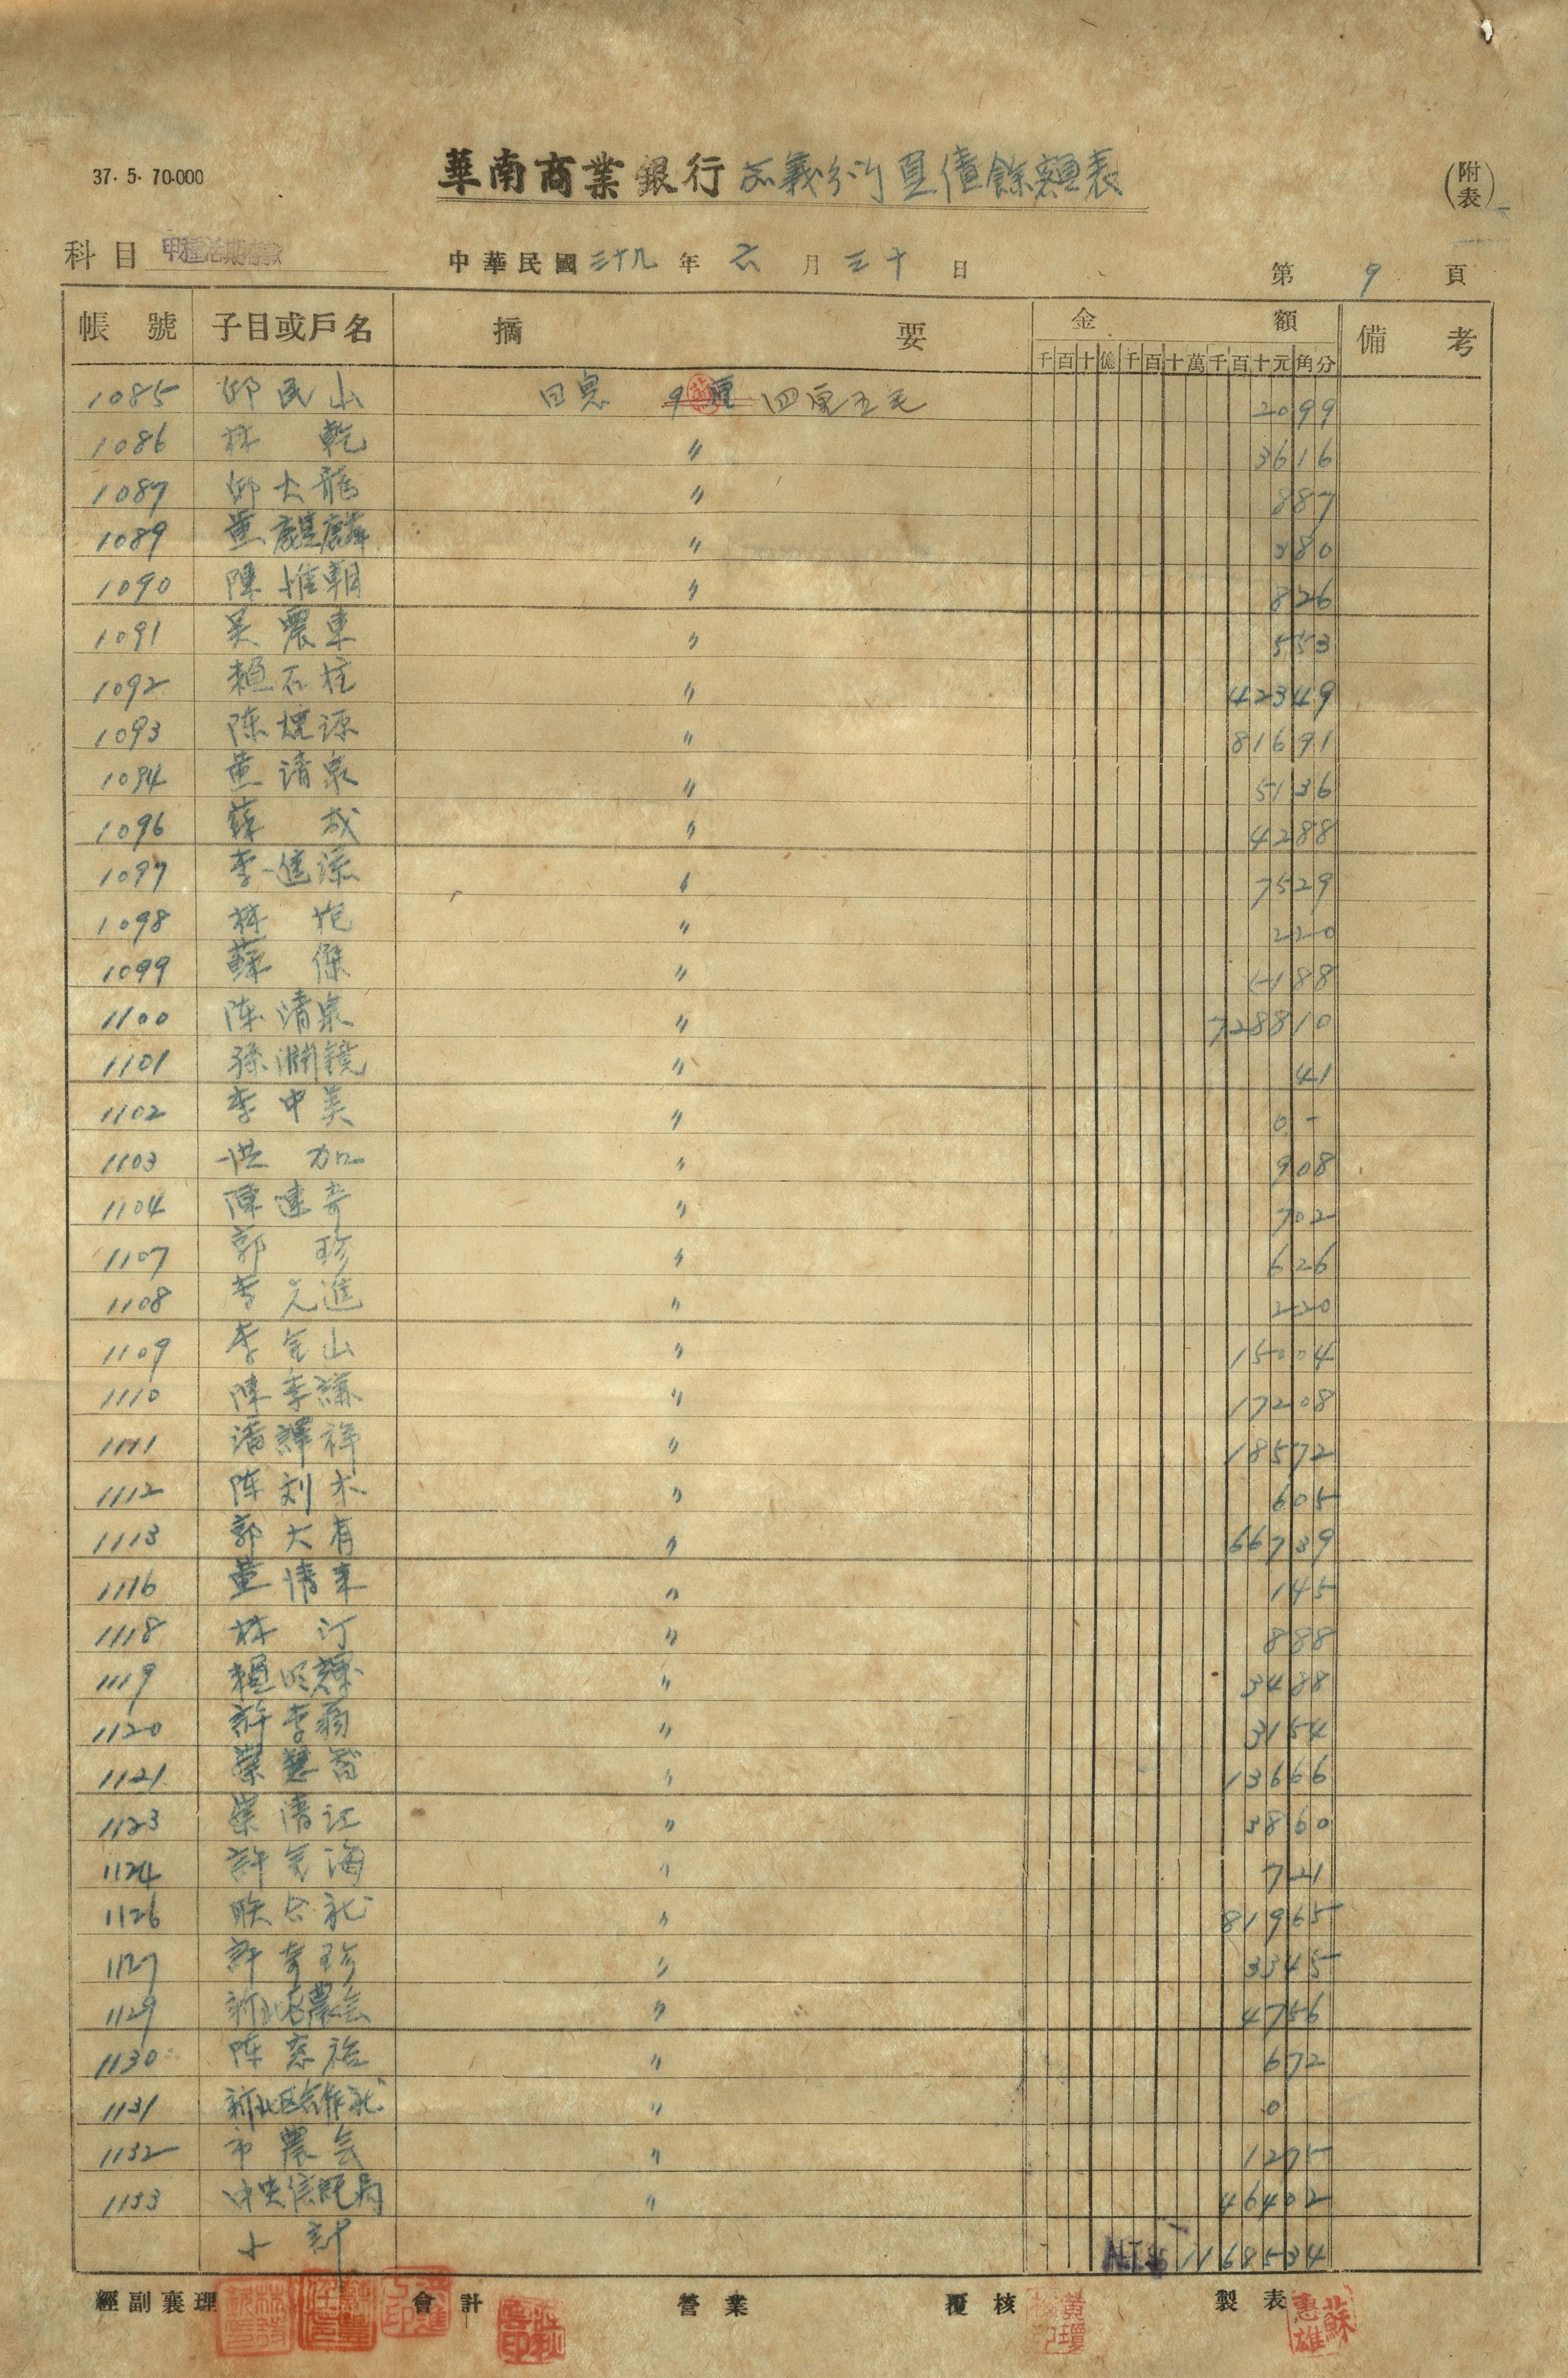 37. 5. 70.000
華南商業銀行 嘉義分行 負債餘額表
(附表)
科目 甲種活期存款 中華民國 三十九 年 六 月 三十 日 第 9 頁
帳號 子目或戶名 摘要 金額 備考
千百十億千百十萬千百十元角分
1085 邱民山 日息 9厘 四厘五毛 2099
1086 林乾 〃 3616
1087 邱大龍 〃 887
1089 黃麒麟 〃 380
1090 陳惟朝 〃 826
1091 吳農東 〃 553
1092 賴石柱 〃 42349
1093 陈焜源 〃 81691
1094 黃清泉 〃 5136
1096 薛成 〃 4288
1097 李進添 〃 7529
1098 林抱 〃 220
1099 蘇傑 〃 1188
1100 陈清泉 〃 728810
1101 孫淵鏡 〃 41
1102 李中美 〃 0-
1103 洪加 〃 908
1104 陳建奇 〃 702
1107 郭珍 〃 626
1108 李光進 〃 220
1109 李金山 〃 15004
1110 陳李謙 〃 17208
1111 潘繹祥 〃 18572
1112 陈刘木 〃 605
1113 郭大有 〃 66739
1116 黃清來 〃 145
1118 林汀 〃 888
1119 賴明懋 〃 3488
1120 許李菊 〃 3154
1121 蔡慧哲 〃 13666
1123 葉清江 〃 3860
1124 許金海 〃 721
1126 联合社 〃 81965
1127 許奇珍 〃 3345
1129 新北區農会 〃 4756
1130 陈意裕 〃 672
1131 新北区合作社 〃 0
1132 市農会 〃 1275
1133 中央信託局 〃 46402
小計 NT$ 1168534
經副襄理 會計 營業 覆核 製表
黃瓊
蘇惠雄